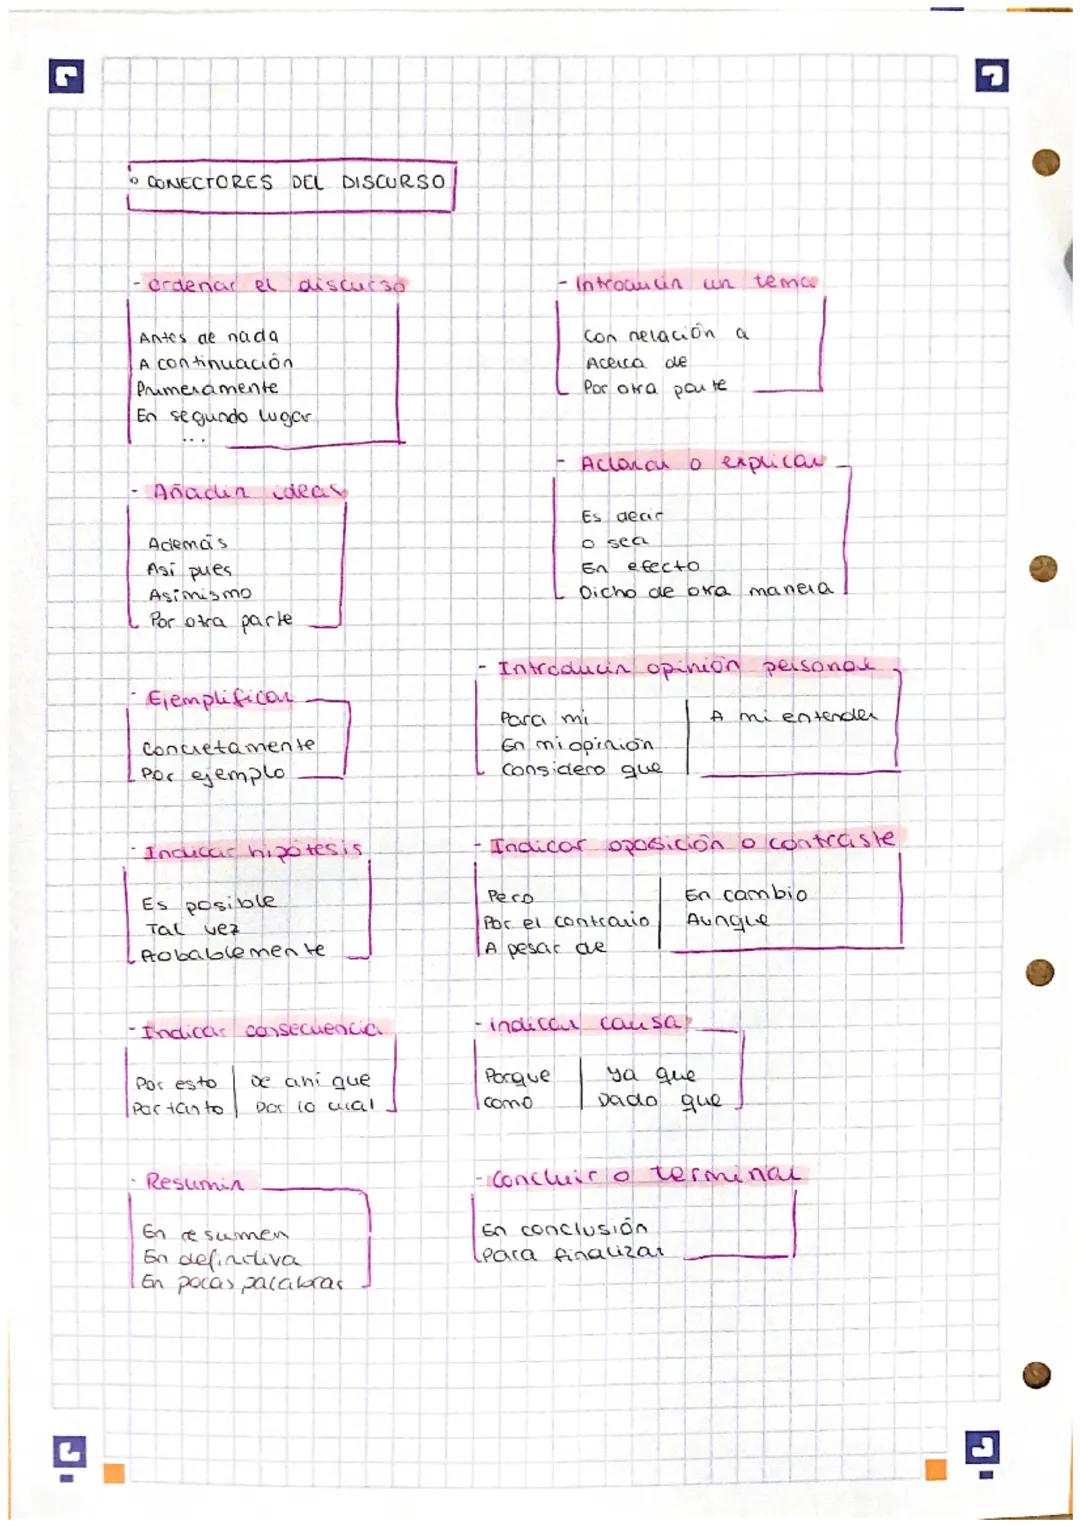 CONECTORES DEL DISCURSO
- ordenar el discurso
Antes de nada
A continuación
Primeramente
En segundo lugar
...
- Introducir un tema
Con relación a
Acerca de
Por otra parte
- Añadir ideas
Además
Así pues
Asimismo
Por otra parte
- Aclarar o explicar
Es decir
o sea
En efecto
Dicho de otra manera
- Ejemplificar
Concretamente
Por ejemplo
- Introducir opinión personal
Para mi
En mi opinión
Considero que
A mi entender
- Indicar hipótesis
Es posible
Tal vez
Probablemente
- Indicar oposición o contraste
Pero
Por el contrario
A pesar de
En cambio
Aunque
- Indicar consecuencia
Por esto
Por tanto
De ahí que
Por lo cual
- indicar causa
Porque
como
Ya que
Dado que
- Resumir
En resumen
En definitiva
En pocas palabras
- Concluir o terminar
En conclusión
Para finalizar